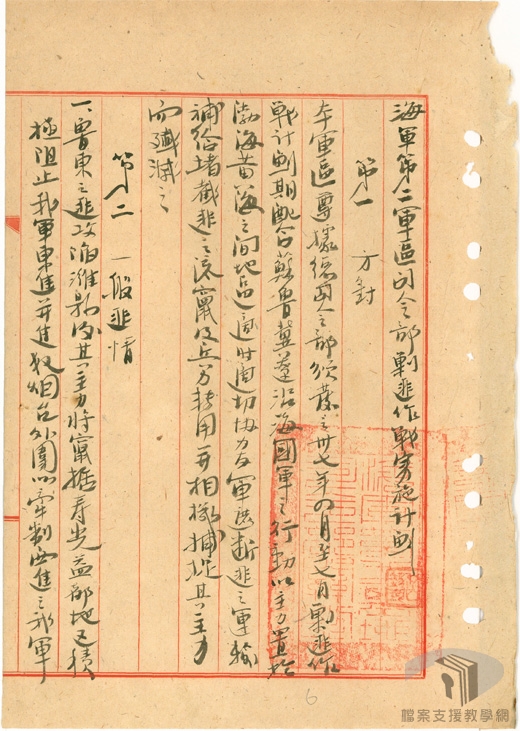 海軍第二軍區司令部剿匪作戰實施計劃
第一 方針
本軍區遵據總司令部頒發之卅七年四月至七月剿匪作
戰計劃期配合蘇魯冀遼沿海國軍之行動以主力置於
渤海黃海之間地區適時適切協力友軍阻斷匪之運輸
補給堵截匪之流竄及兵力轉用並相機捕捉其主力
而殲滅之
第二 一般匪情
一、魯東之匪攻陷濰縣後其主力將竄據壽光益都地區積
極阻止我軍東進並進取烟台外圍以牽制西進之我軍
6
檔案支援教學網